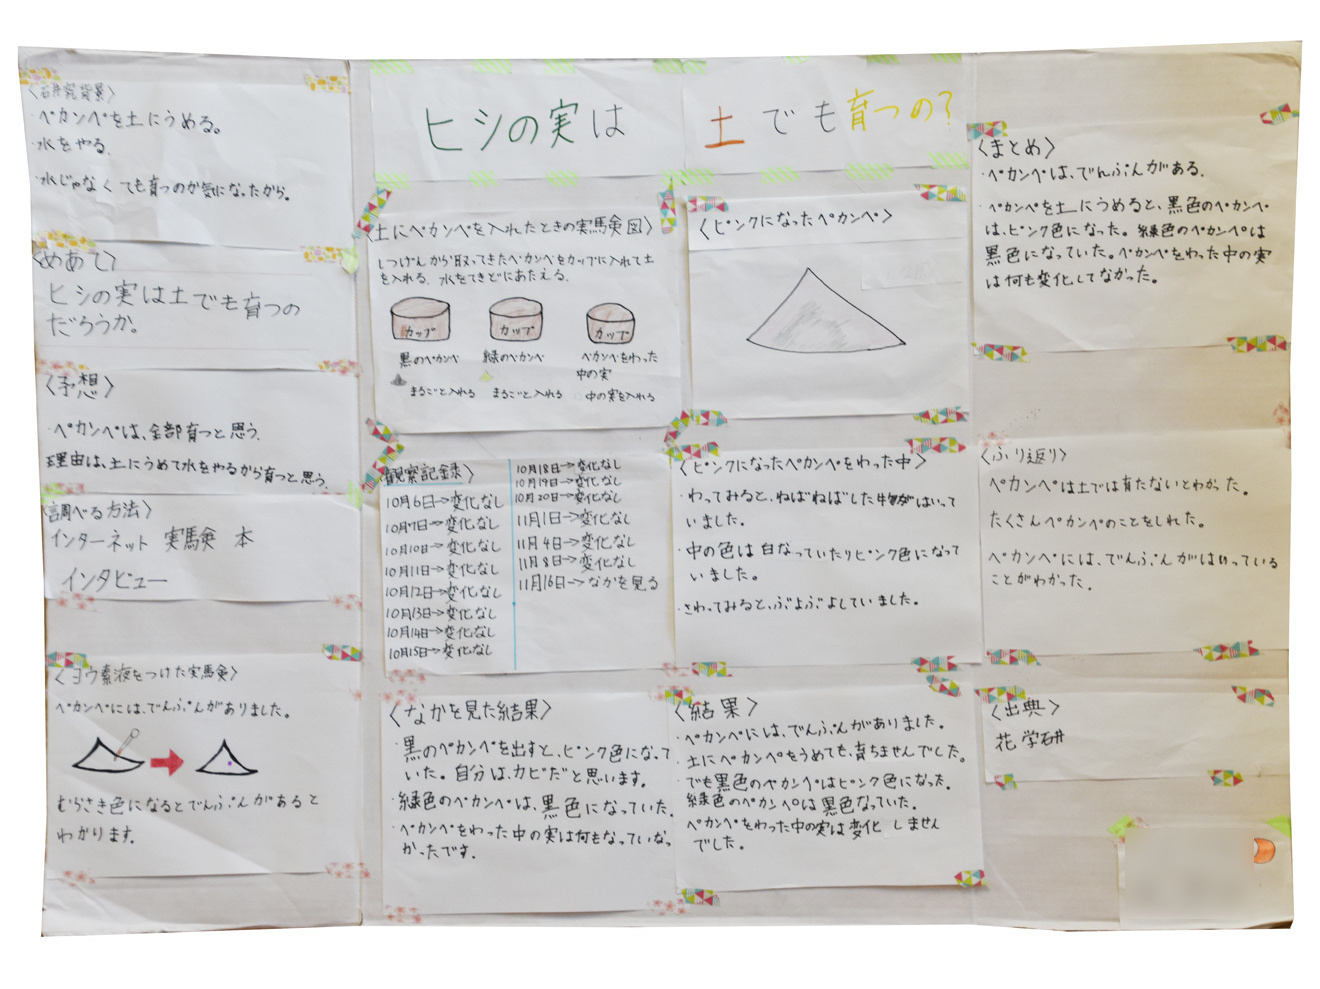 ヒシの実は 土でも育つの?
〈研究背景〉
・ペカンペを土にうめる。
・水をやる。
・水じゃなくても育つのが気になったから。
〈めあて〉
ヒシの実は土でも育つの
だろうか。
〈予想〉
・ペカンペは、全部育つと思う。
理由は、土にうめて水をやるから育つと思う。
〈調べる方法〉
インターネット 実験 本
インタビュー
〈ヨウ素液をつけた実験〉
ペカンペには、でんぷんがありました。
むらさき色になるとでんぷんがあると
わかります。
〈土にペカンペを入れたときの実験図〉
しつげんから取ってきたペカンペをカップに入れて土
を入れる。水をてきどにあたえる。
カップ カップ カップ
黒のペカンペ 緑のペカンペ ペカンペをわった
中の実
まるごと入れる まるごと入れる 中の実を入れる
観察記録〉
10月6日→変化なし
10月7日→変化なし
10月10日→変化なし
10月11日→変化なし
10月12日→変化なし
10月13日→変化なし
10月14日→変化なし
10月15日→変化なし
10月18日→変化なし
10月19日→変化なし
10月20日→変化なし
11月1日→変化なし
11月4日→変化なし
11月8日→変化なし
11月16日→なかを見る
〈なかを見た結果〉
・黒のペカンペを出すと、ピンク色になって
いた。自分は、カビだと思います。
・緑色のペカンペは、黒色になっていた。
・ペカンペをわった中の実は何もなっていな
かったです。
〈ピンクになったペカンペ〉
〈ピンクになったペカンペをわった中〉
・わってみると、ねばねばした物がはいって
いました。
・中の色は白なっていたりピンク色になって
いました。
・さわってみると、ぶよぶよしていました。
〈結果〉
・ペカンペには、でんぷんがありました。
・土にペカンペをうめても、育ちませんでした。
・でも黒色のペカンペはピンク色になった。
緑色のペカンペは黒色なっていた。
ペカンペをわった中の実は変化しません
でした。
〈まとめ〉
・ペカンペは、でんぷんがある。
・ペカンペを土にうめると、黒色のペカンペ
は、ピンク色になった。緑色のペカンペは
黒色になっていた。ペカンペをわった中の実
は何も変化してなかった。
〈ふり返り〉
ペカンペは土では育たないとわかった。
たくさんペカンペのことをしれた。
ペカンペには、でんぷんがはいっている
ことがわかった。
〈出典〉
花学研